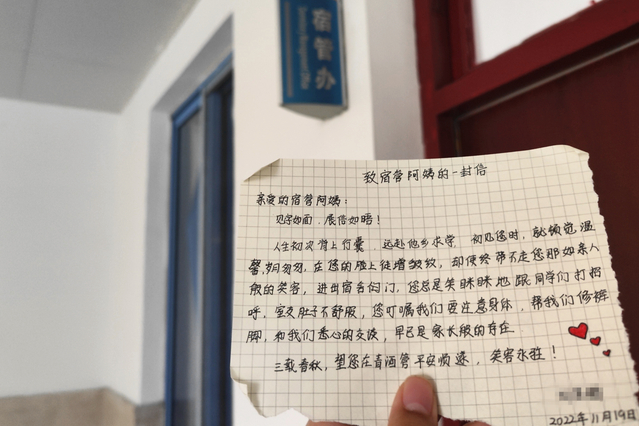 宿管办
致宿管阿姨的一封信
亲爱的宿管阿姨：
见字如面，展信如晤！
人生初次背上行囊，远赴他乡求学，初见您时，就倍觉温
馨，岁月匆匆，在您的脸上徒增皱纹，却始终带不走您那如亲人
般的笑容，进出宿舍闸门，您总是笑眯眯地跟同学们打招
呼，室友肚子不舒服，您叮嘱我们要注意身体，帮我们修裤
脚，和我们悉心的交谈，早已是家长般的存在。
三载春秋，望您在青酒管平安顺遂，笑容永驻！
2022年11月19日